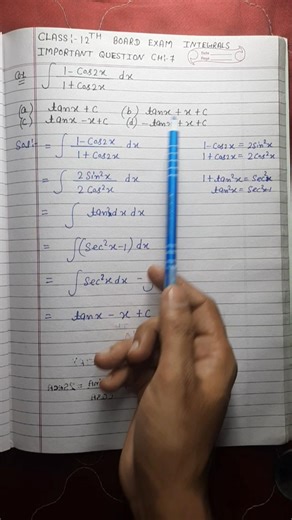 CLASS:-12TH BOARD EXAM INTEGRALS
IMPORTANT QUESTION CH:7
Q1 ∫ (1-Cos2x)/(1+Cos2x) dx
(a) tanx + C (b) tanx + x + C
(c) tanx - x + C (d) -tanx + x + C
Sol:- = ∫ (1-Cos2x)/(1+Cos2x) dx
1-Cos2x = 2Sin²x
1+Cos2x = 2Cos²x
= ∫ 2Sin²x/2Cos²x dx
1+tan²x = Sec²x
tan²x = Sec²x-1
= ∫ tan²x dx
= ∫ (Sec²x-1) dx
= ∫ Sec²x dx - ∫
= tanx - x + C